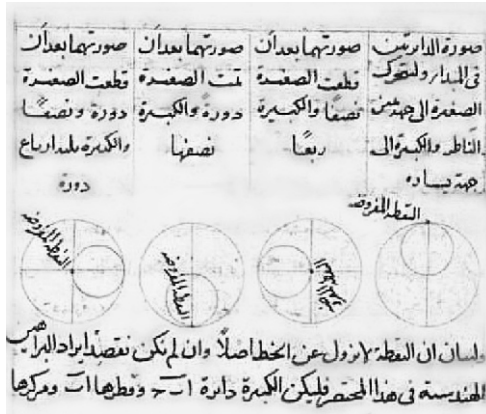 صورة الدائرتين
في المبدأ ولتتحرك
الصغيرة الى جهة يمين
الناظر والكبيرة الى
جهة يساره
صورتهما بعد أن
قطعت الصغيرة
نصفًا والكبيرة
ربعًا
صورتهما بعد أن
تمت الصغيرة
دورةً والكبيرة
نصفها
صورتهما بعد أن
قطعت الصغيرة
دورة ونصفًا
والكبيرة ثلثة ارباع
دورة
النقطة المفروضة
النقطة المفروضة
النقطة المفروضة
ولبيان ان النقطة لا تزول عن الخط اصلًا وان لم نكن نقصد ايراد البراهين
الهندسية في هذا المختصر فليكن الكبيرة دائرة اب وقطرها اب ومركزها